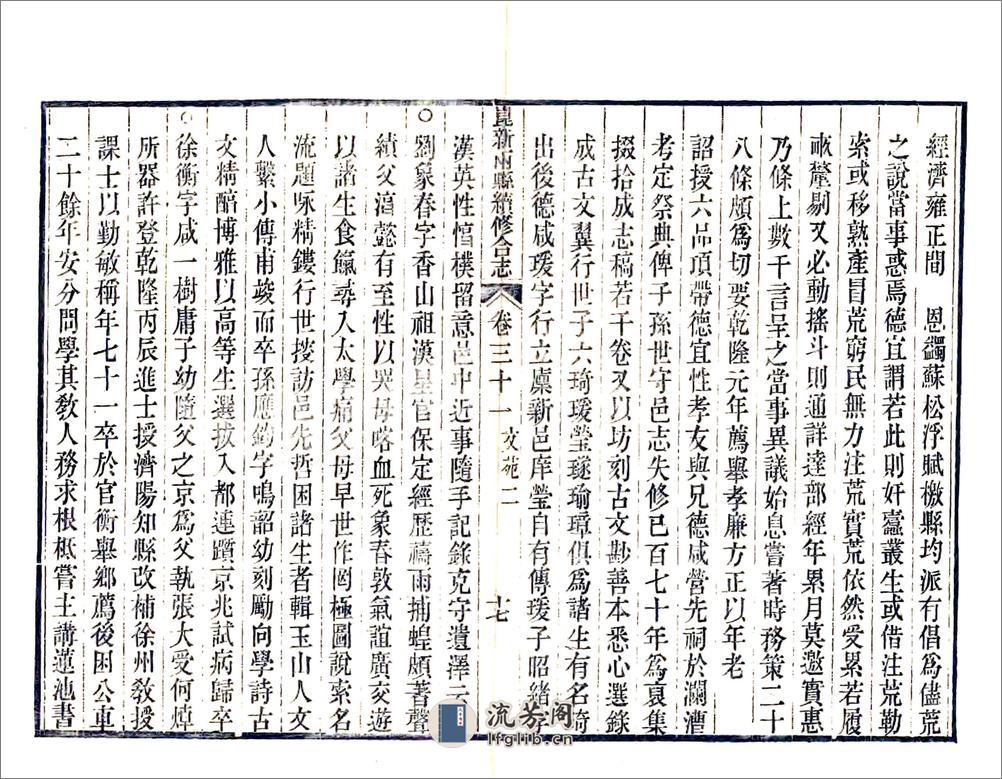 經濟雍正間　恩蠲蘇松浮賦檄縣均派有倡為儘荒
之說當事惑焉德宜謂若此則奸蠹叢生或借注荒勒
索或移熟產冒荒窮民無力注荒實荒依然受累若履
畝釐剔又必動搖斗則通詳達部經年累月莫邀實惠
乃條上數千言呈之當事異議始息嘗著時務策二十
八條頗為切要乾隆元年薦舉孝廉方正以年老
詔授六品頂帶德宜性孝友與兄德咸營先祠於瀾漕
考定祭典俾子孫世守邑志失修已百七十年為裒集
掇拾成志稿若干卷又以坊刻古文尠善本悉心選錄
成古文翼行世子六琦瑗瑩琢瑜璋俱為諸生有名琦
出後德咸瑗字行立廩新邑庠瑩自有傳瑗子昭緒字
崑新兩縣續修合志 卷三十一 文苑二 十七
漢英性慥樸留意邑中近事隨手記錄克守遺澤云
○劉象春字香山祖漢星官保定經歷禱雨捕蝗頗著聲
績父濤懿有至性以哭母喀血死象春敦氣誼廣交遊
以諸生食餼尋入太學痛父母早世作罔極圖說索名
流題咏精鏤行世搜訪邑先哲困諸生者輯玉山人文
人繫小傳甫竣而卒孫應鈞字鳴韶幼刻勵向學詩古
文精醇博雅以高等生選拔入都連躓京兆試病歸卒
○徐衡字咸一樹庸子幼隨父之京為父執張大受何焯
所器許登乾隆丙辰進士授濟陽知縣改補徐州敎授
課士以勤敏稱年七十一卒於官衡舉鄉薦後困公車
二十餘年安分問學其敎人務求根柢嘗主講蓮池書
流芳阁
lfglib.cn